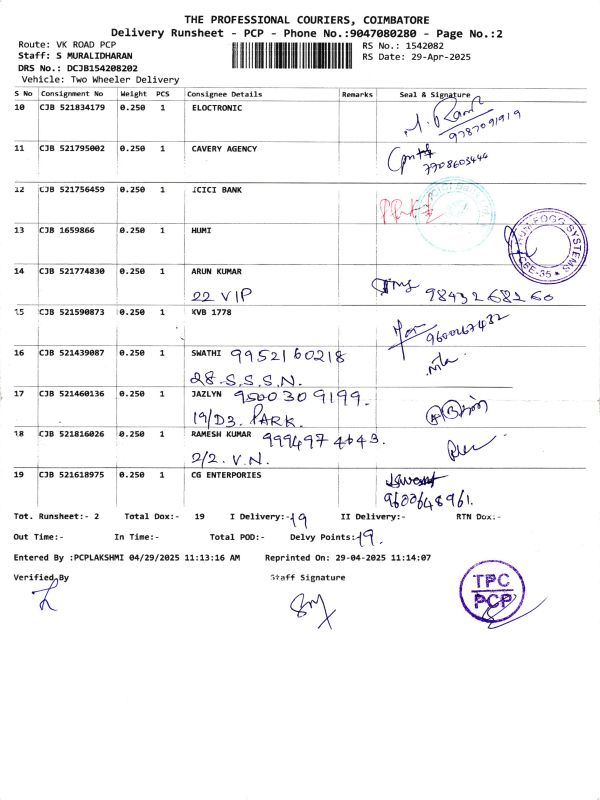 THE PROFESSIONAL COURIERS, COIMBATORE
Delivery Runsheet - PCP - Phone No.:9047080280 - Page No.:2
Route: VK ROAD PCP RS No.: 1542082
Staff: S MURALIDHARAN RS Date: 29-Apr-2025
DRS No.: DCJB154208202
Vehicle: Two Wheeler Delivery
S No Consignment No Weight PCS Consignee Details Remarks Seal & Signature
10 CJB 521834179 0.250 1 ELOCTRONIC
9787091919
11 CJB 521795002 0.250 1 CAVERY AGENCY
7908603444
12 CJB 521756459 0.250 1 ICICI BANK
13 CJB 1659866 0.250 1 HUMI
SYSTEMS
CBE-35
14 CJB 521774830 0.250 1 ARUN KUMAR
22 VIP 9843268260
15 CJB 521590873 0.250 1 KVB 1778
9600267432
16 CJB 521439087 0.250 1 SWATHI 9952160218
28-S.S.S.N.
17 CJB 521460136 0.250 1 JAZLYN 9500309199.
19/D3. PARK.
18 CJB 521816026 0.250 1 RAMESH KUMAR 9994974643.
2/2. V.N.
19 CJB 521618975 0.250 1 CG ENTERPORIES
9600648961.
Tot. Runsheet:- 2 Total Dox:- 19 I Delivery:-19 II Delivery:- RTN Dox:-
Out Time:- In Time:- Total POD:- Delvy Points:-19.
Entered By :PCPLAKSHMI 04/29/2025 11:13:16 AM Reprinted On: 29-04-2025 11:14:07
Verified By Staff Signature
TPC
PCP